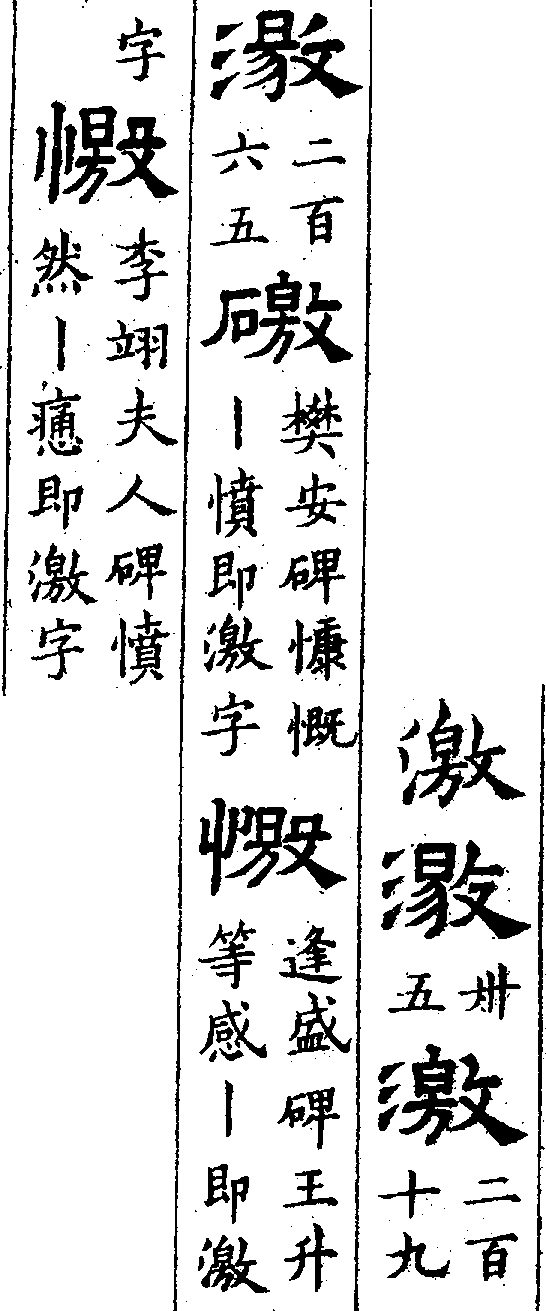 激激卌五激二百十九
激二百六五礉樊安碑慷慨丨憤即激字憿逢盛碑王升等感丨即激
字憿李翊夫人碑憤然丨即激字